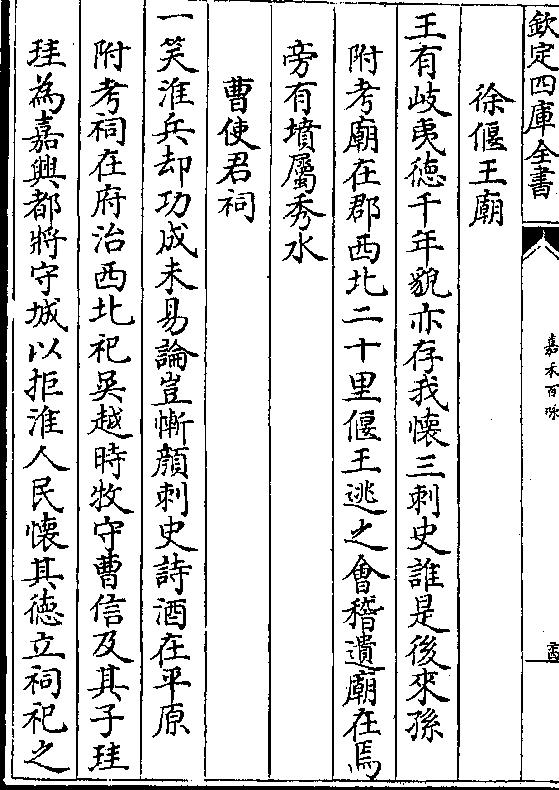 欽定四庫全書
嘉禾百咏
徐偃王廟
王有岐夷德千年貌亦存我懷三刺史誰是後來孫
附考廟在郡西北二十里偃王逃之會稽遺廟在焉
旁有墳屬秀水
曹使君祠
一笑淮兵却功成未易論豈慚顔刺史詩酒在平原
附考祠在府治西北祀吳越時牧守曹信及其子珪
珪為嘉興都將守城以拒淮人民懐其德立祠祀之